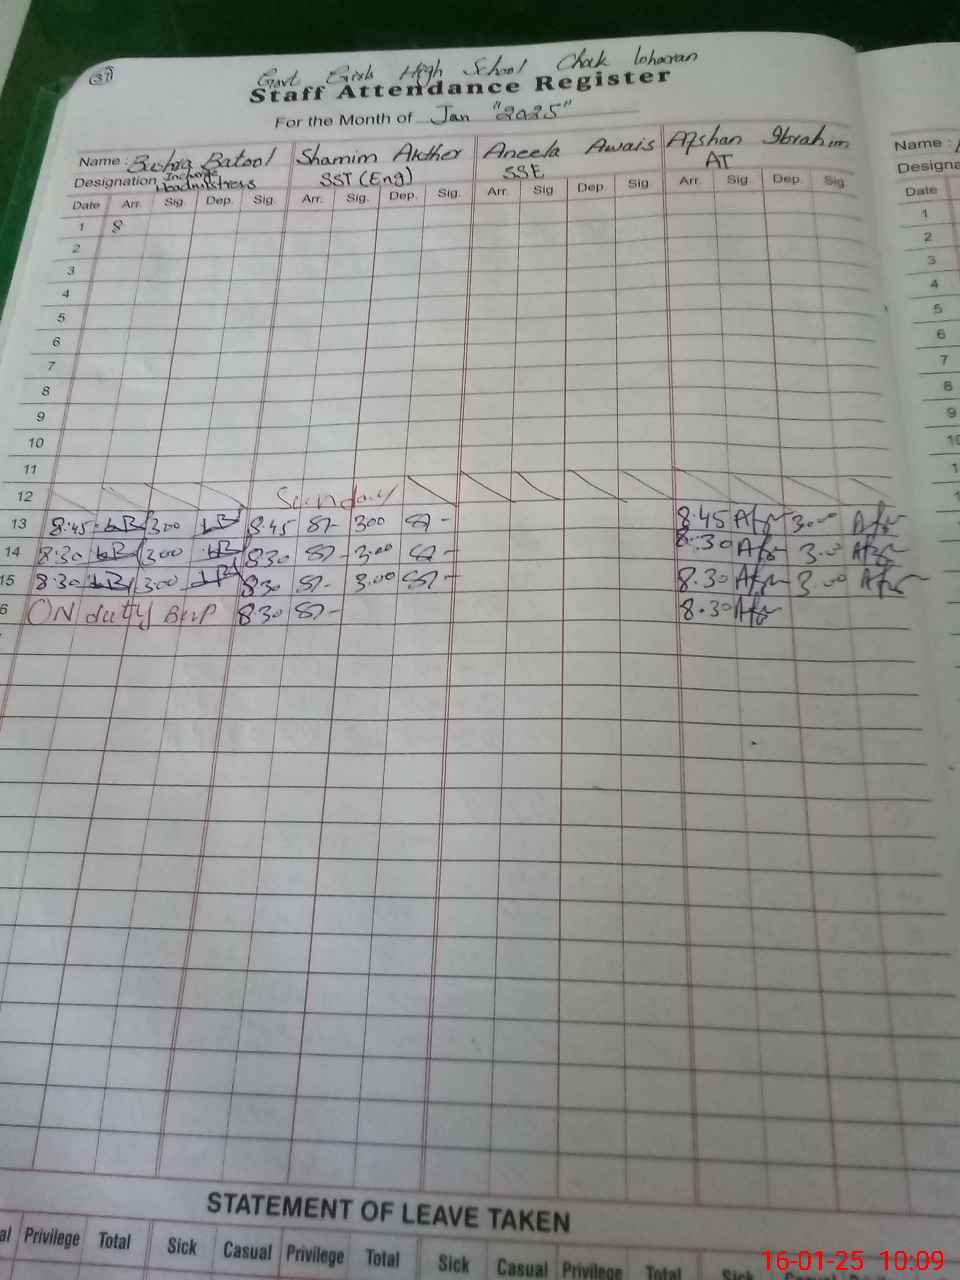 37
Govt Girls High School Chak loharan
Staff Attendance Register
For the Month of Jan "2025"
Name : Bushra Batool Shamim Akther Aneela Awais Afshan Ibrahim Name :
Designation Incharge Headmistress SST (Eng) SSE AT Designa
Date Arr. Sig. Dep. Sig. Arr. Sig. Dep. Sig. Arr. Sig Dep. Sig. Arr. Sig. Dep. Sig. Date
1 8 1
2 2
3 3
4 4
5 5
6 6
7 7
8 8
9 9
10 10
11
12 Sunday
13 8.45 300 8.45 300 8.45 3.00
14 8.30 300 8.30 3.00 8.30 3.00
15 8.30 300 8.30 3.00 8.30 3.00
6 ON duty 8.30 8.30
STATEMENT OF LEAVE TAKEN
al Privilege Total Sick Casual Privilege Total Sick Casual Privilege Total Sick Casual
16-01-25 10:09